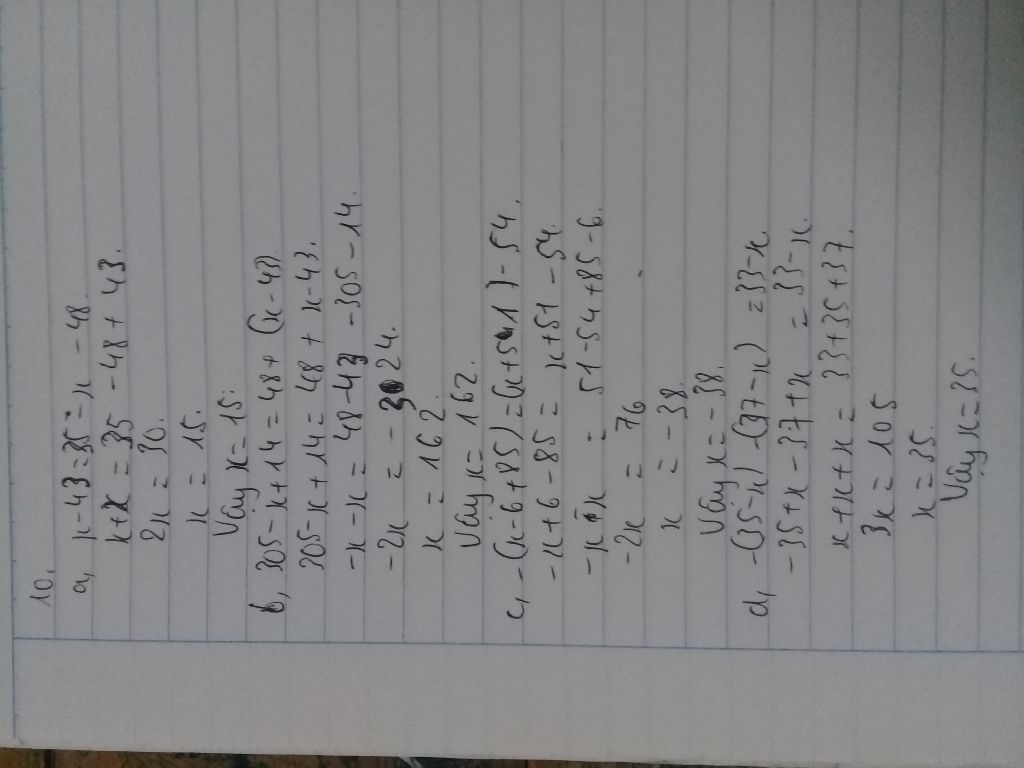 10,
a, x-43=35-x-48.
x+x=35-48+43.
2x=30.
x=15.
Vậy x=15.
b, 305-x+14=48+(x-43)
305-x+14=48+x-43.
-x-x=48-43-305-14.
-2x=-324.
x=162.
Vậy x=162.
c, -(x-6+85)=(x+51)-54.
-x+6-85=x+51-54.
-x-x=51-54+85-6.
-2x=76
x=-38.
Vậy x=-38.
d, -(35-x)-(37-x)=33-x.
-35+x-37+x=33-x.
x+x+x=33+35+37.
3x=105
x=35.
Vậy x=35.